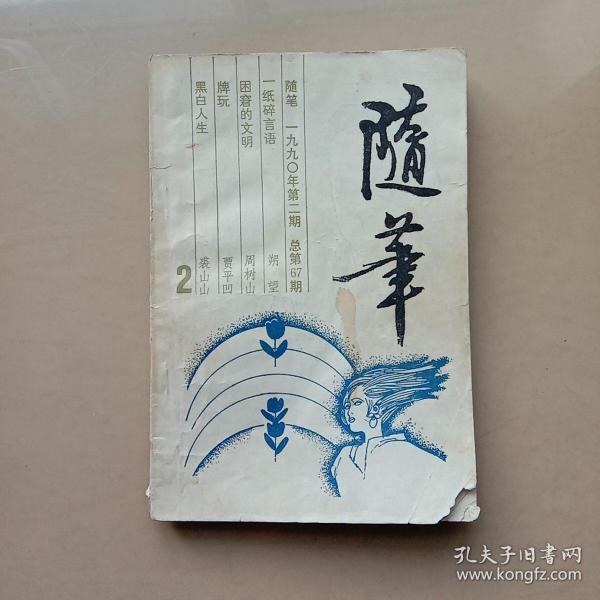 隨筆
随笔 一九九〇年第二期 总第67期
一纸碎言语 朔望
困窘的文明 周树山
牌玩 贾平凹
黑白人生 裘山山
2
孔夫子旧书网
www.kongfz.com